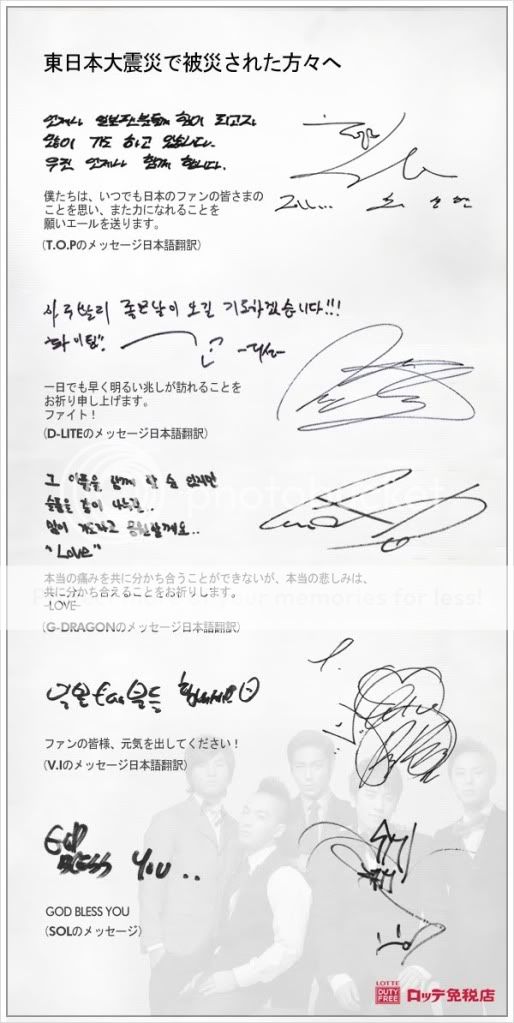 東日本大震災で被災された方々へ
언제나 일본팬분들께 힘이 되고자
많이 기도 하고 있습니다.
우린 언제나 함께 합니다.
僕たちは、いつでも日本のファンの皆さまの
ことを思い、また力になれることを
願いエールを送ります。
(T.O.Pのメッセージ日本語翻訳)
하루빨리 좋은날이 오길 기도하겠습니다!!!
"화이팅". -대성-
一日でも早く明るい兆しが訪れることを
お祈り申し上げます。
ファイト!
(D-LITEのメッセージ日本語翻訳)
그 아픔을 함께 할 수 없지만
슬픔을 같이 나누고..
많이 기도하고 응원할께요..
"Love"
photobucket
本当の痛みを共に分かち合うことができないが、本当の悲しみは、
共に分かち合えることをお祈りします。
-LOVE-
memories for less!
(G-DRAGONのメッセージ日本語翻訳)
힘내세요
ファンの皆様、元気を出してください!
(V.Iのメッセージ日本語翻訳)
GOD
BLESS YOU..
GOD BLESS YOU
(SOLのメッセージ)
LOTTE
DUTY
FREE
ロッテ免税店